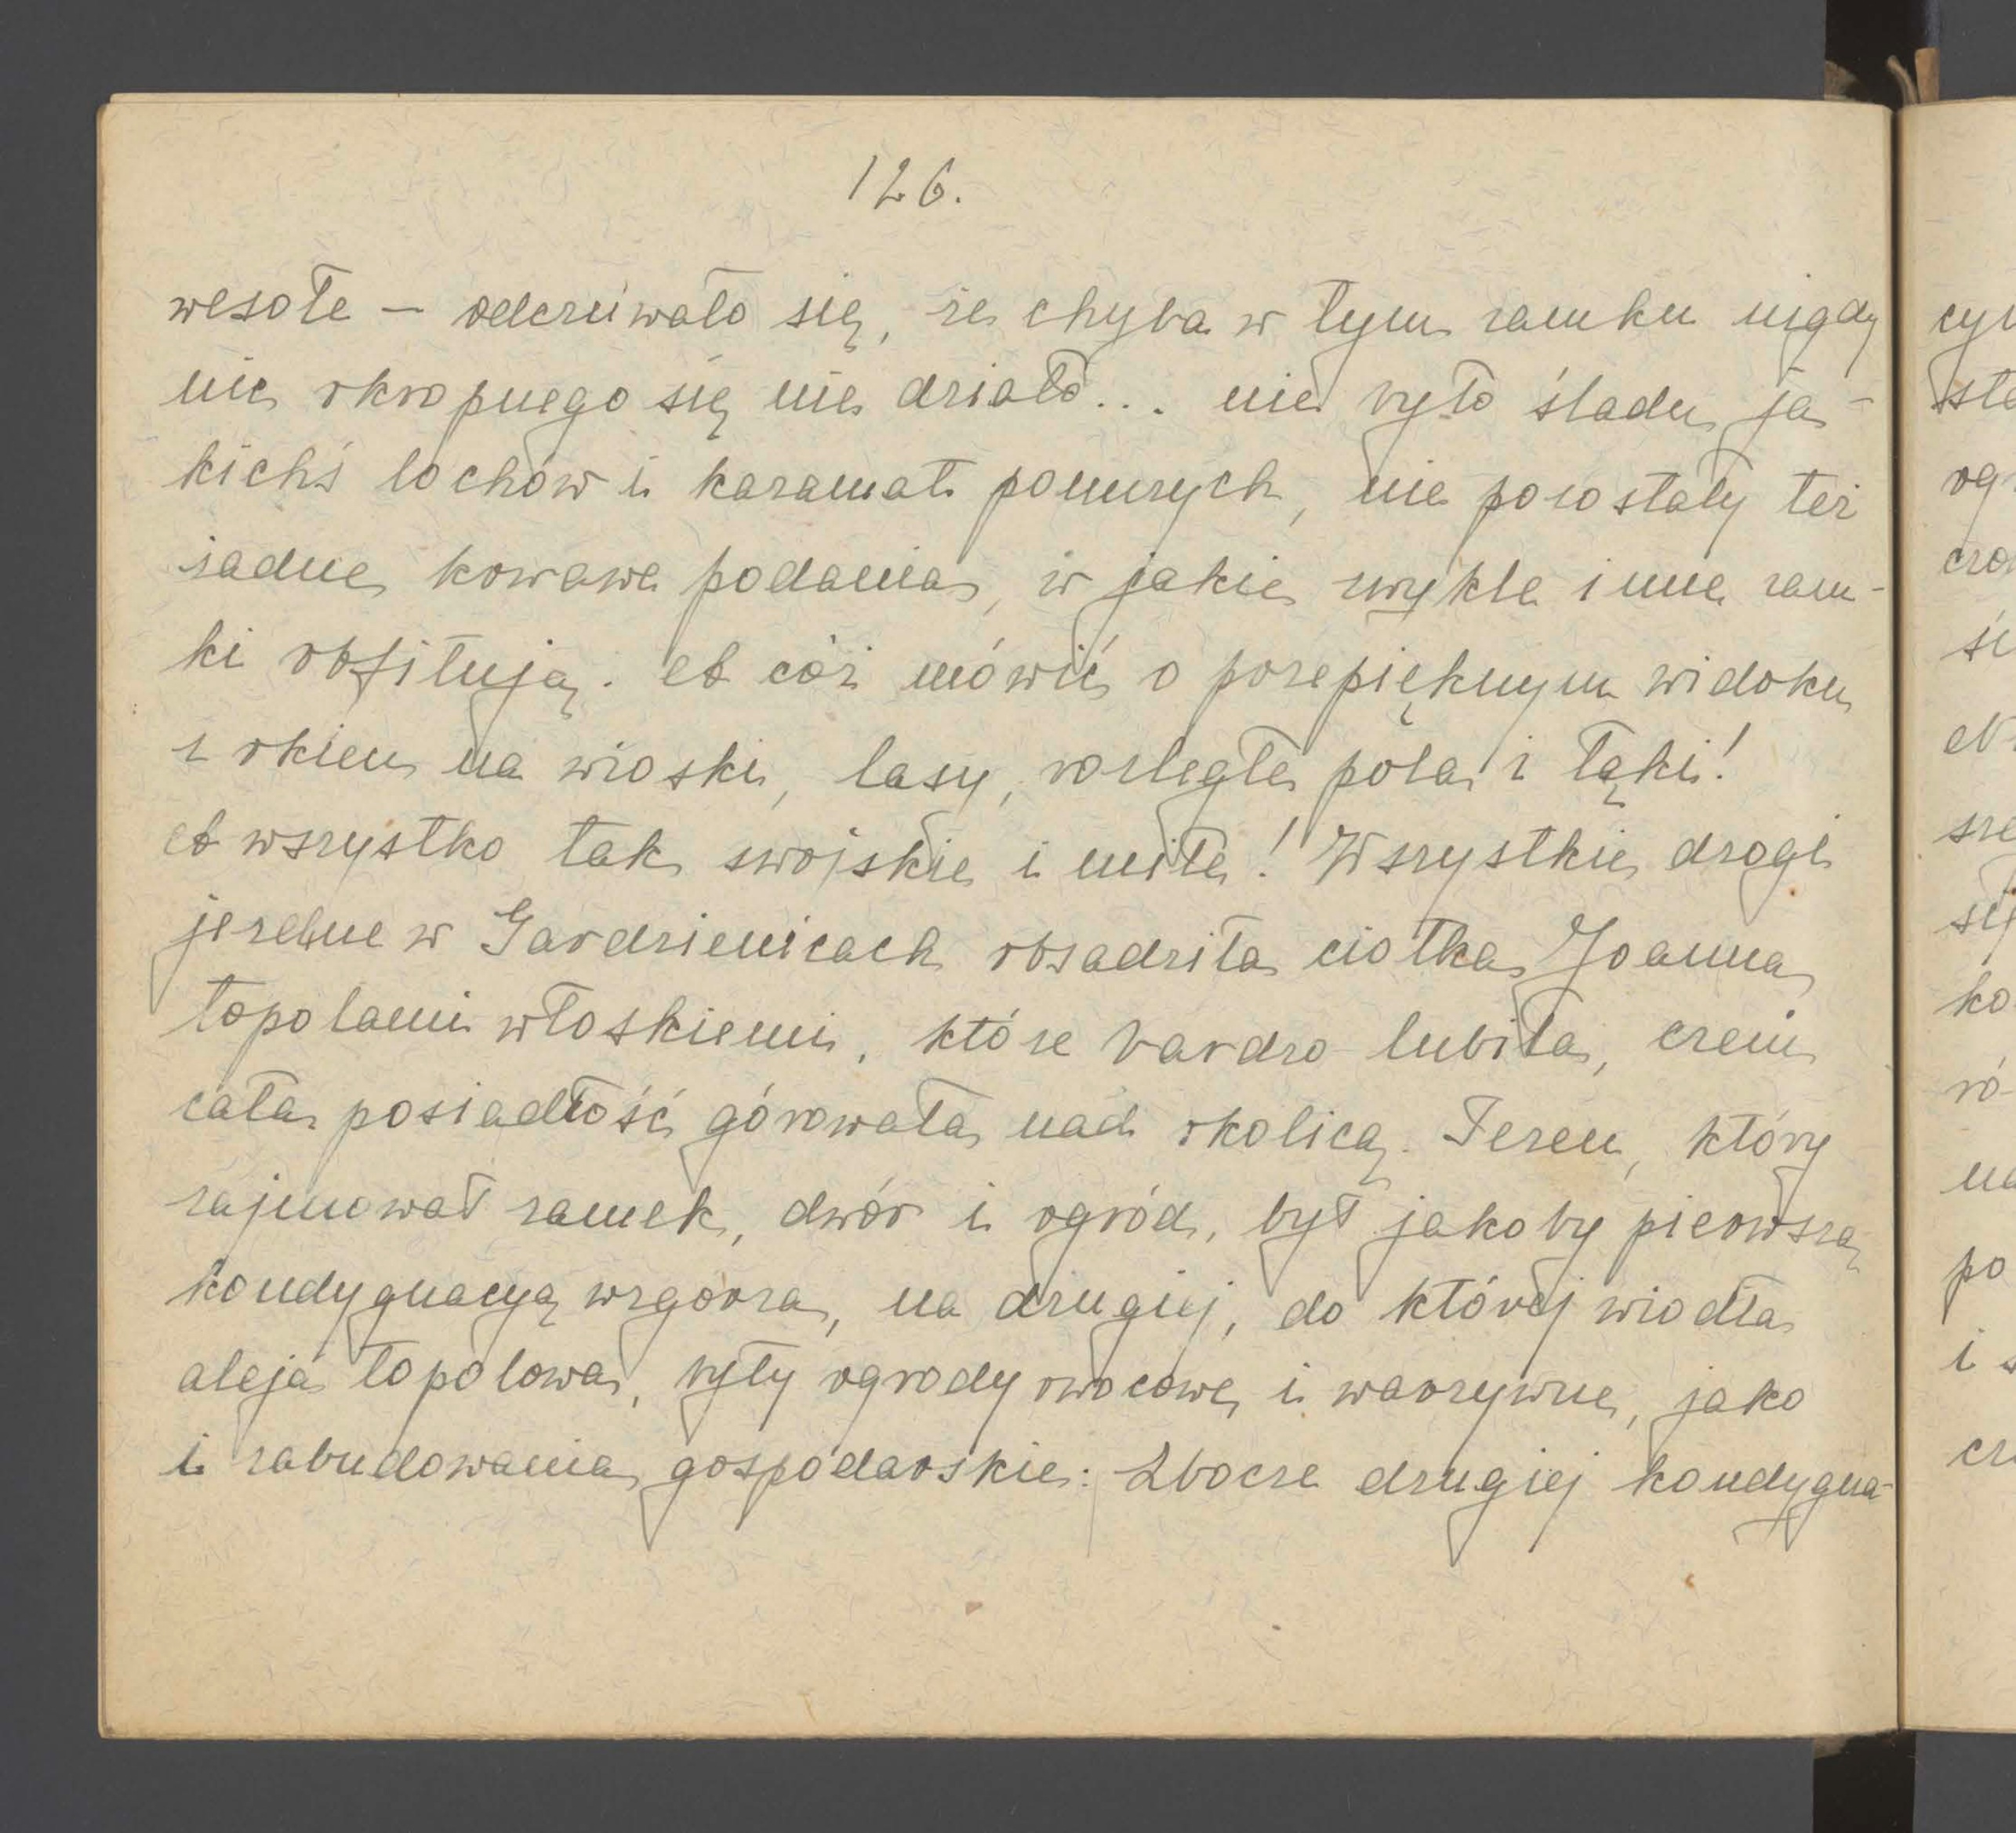 126.
wesołe – odczuwało się, że chyba w tym zamku nigdy
nic okropnego się nie działo... nie było śladu ja-
kichś lochów i kazamat ponurych, nie pozostały też
żadne krwawe podania, w jakie zwykle inne zam-
ki obfitują. A cóż mówić o przepięknym widoku
z okien na wioski, lasy, rozległe pola i łąki!
A wszystko tak swojskie i miłe! Wszystkie drogi
jezdne w Gardzienicach obsadziła ciotka Joanna
topolami włoskiemi, które bardzo lubiła, czem
cała posiadłość górowała nad okolicą. Teren, który
zajmował zamek, dwór i ogród, był jakoby pierwszą
kondygnacyą wzgórza, na drugiej, do której wiodła
aleja topolowa, były ogrody owocowe i warzywne, jako
i zabudowania gospodarskie: Zbocze drugiej kondygna-